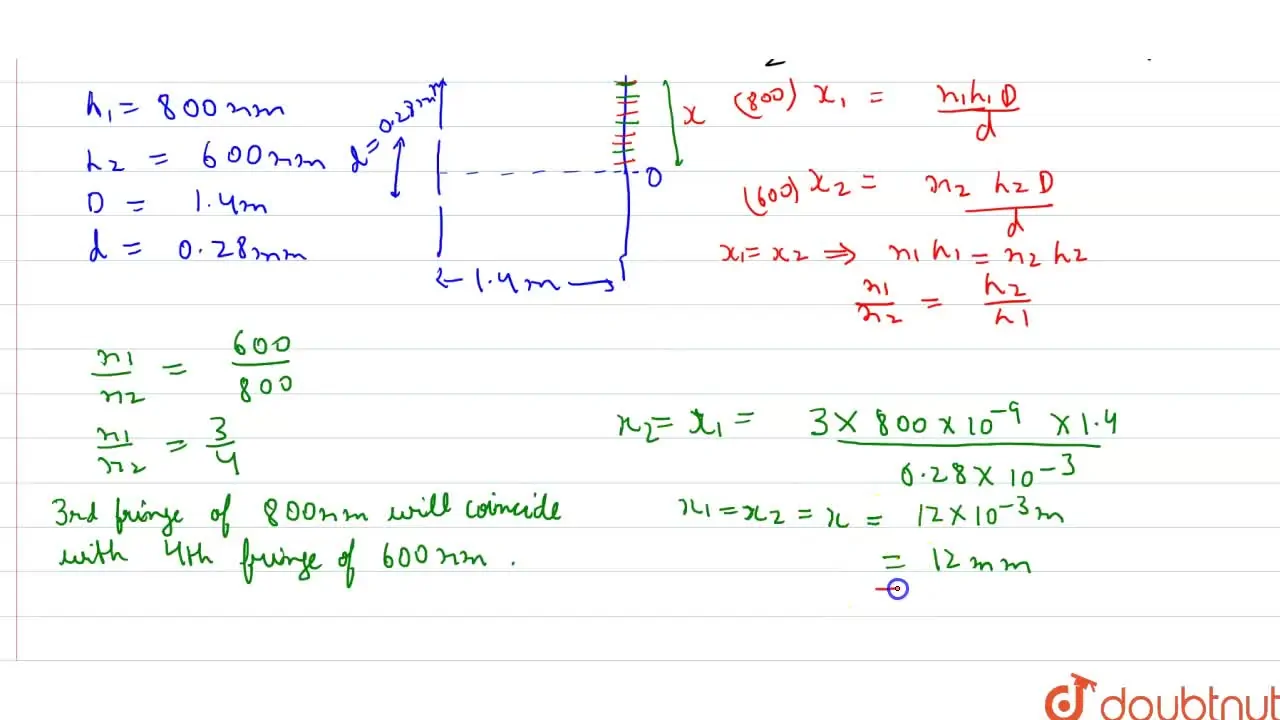 h₁ = 800nm
h2 = 600nm
D = 1.4m
d = 0.28mm
d = 0.28mm
x
O
← 1.4m →
(800) x₁ = n₁h₁D / d
(600) x₂ = n₂ h₂ D / d
x₁ = x₂ ⇒ n₁ h₁ = n₂ h₂
n₁/n₂ = h₂/h1
n₁/n₂ = 600/800
n₁/n₂ = 3/4
3rd fringe of 800nm will coincide
with 4th fringe of 600nm.
x₂ = x₁ = 3 × 800 × 10⁻⁹ × 1.4 / 0.28 × 10⁻³
x₁ = x₂ = x = 12 × 10⁻³ m
= 12 mm
doubtnut